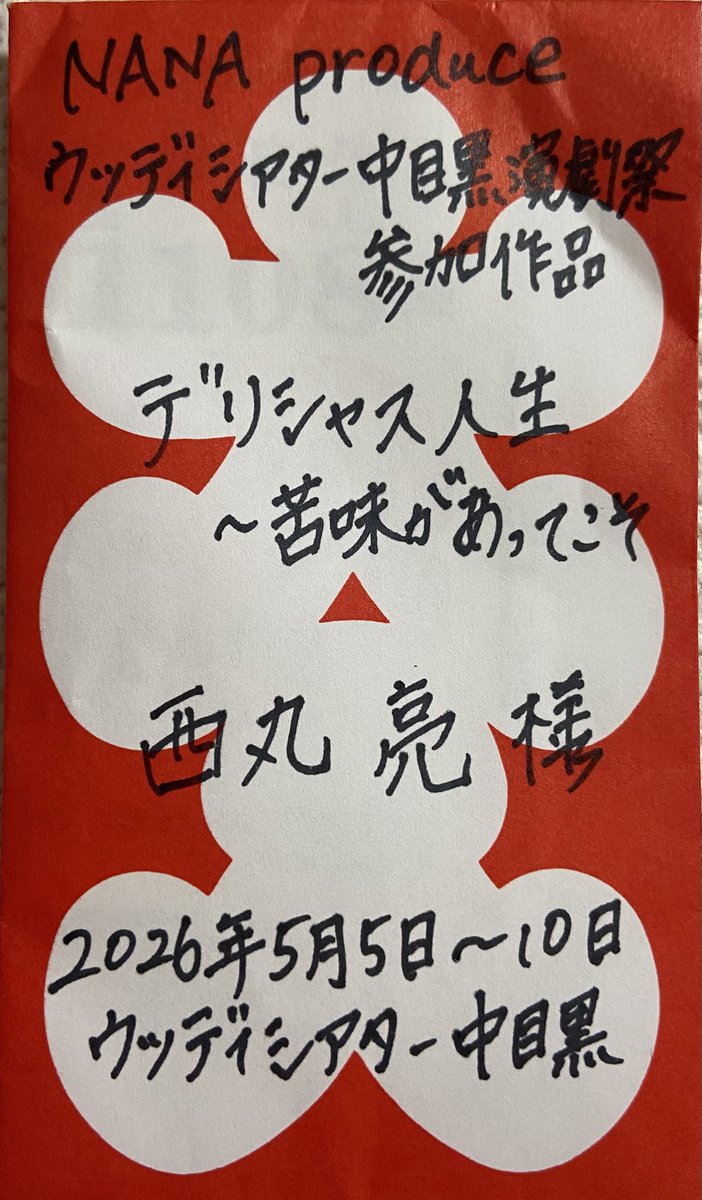 NANA produce
ウッディシアター中目黒演劇祭
参加作品
デリシャス人生
~苦味があってこそ
西丸 亮 様
2026年5月5日~10日
ウッディシアター中目黒